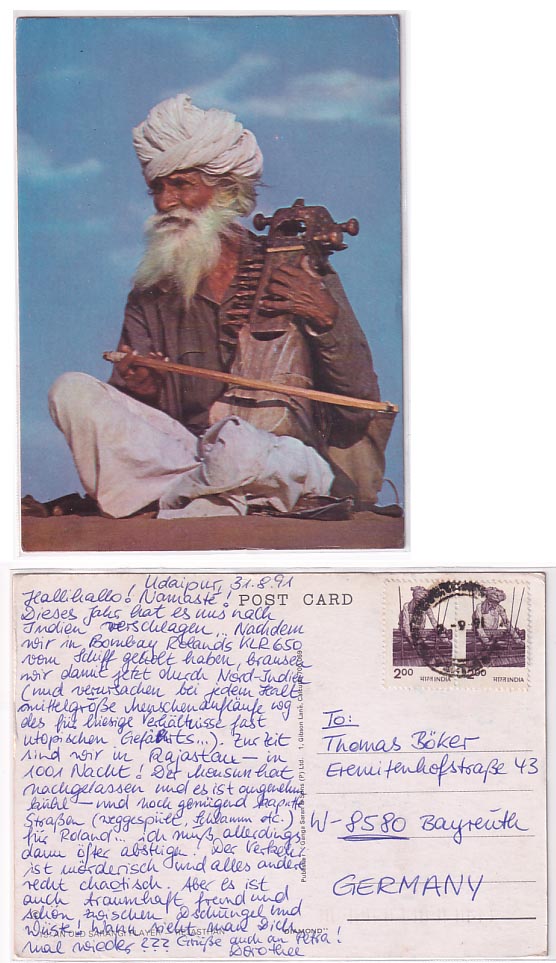 Udaipur, 31.8.91
Hallihallo! Namasté!
POST CARD
Dieses Jahr hat es uns nach
Indien verschlagen... Nachdem
wir in Bombay Rolands KLR 650
vom Schiff geholt haben, brausen
wir damit jetzt durch Nord-Indien
(und verursachen bei jedem Halt
mittelgroße Menschenaufläufe wg
des für hiesige Verhältnisse fast
utopischen Gefährts...). Zur Zeit
sind wir in Rajastan – in
1001 Nacht! Der Monsun hat
nachgelassen und es ist angenehm
kühl – und noch genügend kaputte
Straßen (weggespült, Schlamm etc.)
für Roland... ich muß allerdings
dann öfter absteigen. Der Verkehr
ist mörderisch und alles andere
recht chaotisch. Aber es ist
auch traumhaft, fremd und
schön zwischen Dschungel und
Wüste! Wann sieht man Dich
mal wieder??? Grüße auch an Petra!
Dorothee
AN OLD SARANGI PLAYER
"DIAMOND"
2.00 भारत INDIA
2.00 भारत INDIA
-9.91
To:
Thomas Böker
Eremitenhofstraße 43
W-8580 Bayreuth
GERMANY